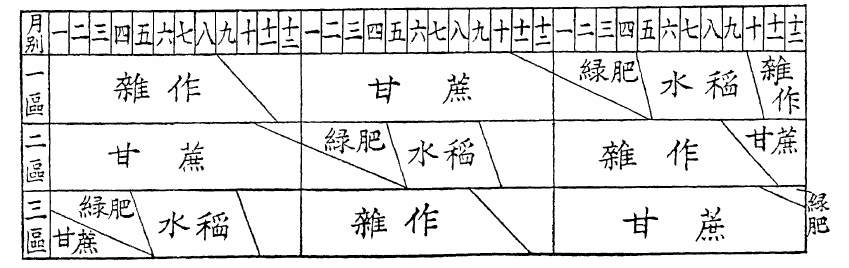 月別 一 二 三 四 五 六 七 八 九 十 十一 十二 一 二 三 四 五 六 七 八 九 十 十一 十二 一 二 三 四 五 六 七 八 九 十 十一 十二
一區 雜作 甘蔗 綠肥 水稻 雜作
二區 甘蔗 綠肥 水稻 雜作 甘蔗
三區 甘蔗 綠肥 水稻 雜作 甘蔗 綠肥